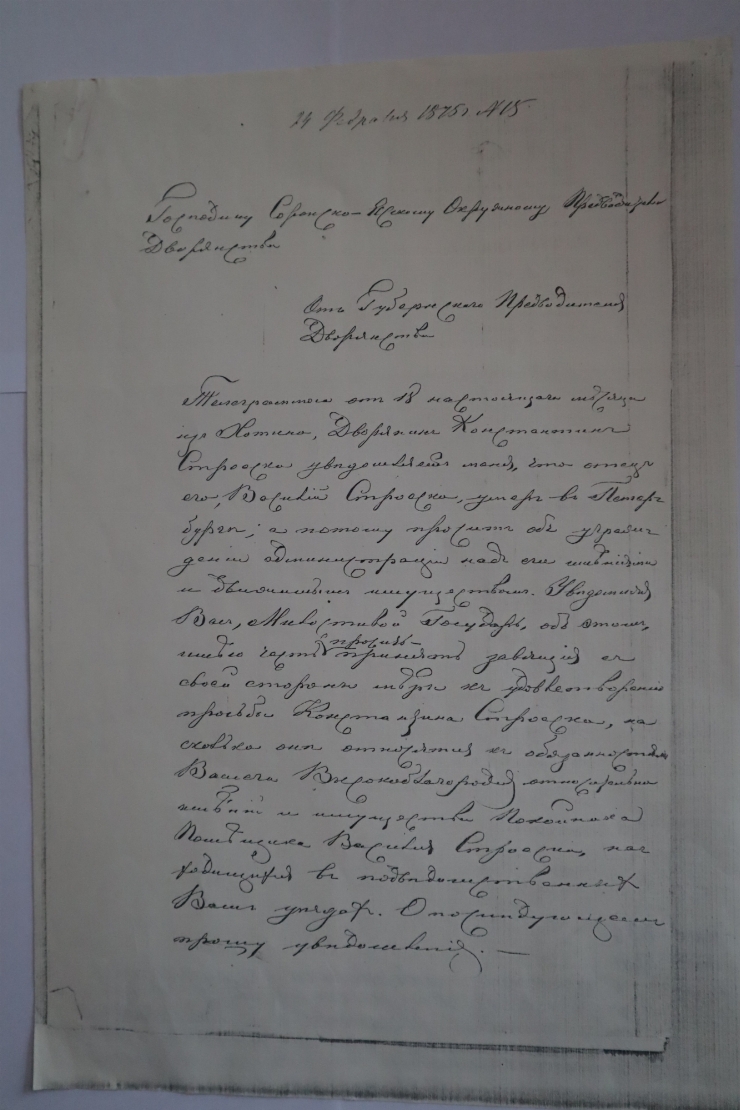 24 Февраля 1875 г. N 15.
Господину Сорокско-Ясскому Окружному Предводителю
Дворянства
Отъ Губернскаго Предводителя
Дворянства
Телеграммою отъ 18 настоящаго мѣсяца
изъ Хотина, Дворянинъ Константинъ
Строеско увѣдомляетъ меня, что отецъ
его, Василий Строеско, умеръ въ Петер
бургѣ; а потому проситъ объ учреж
деніи администраціи надъ его имѣніями
и движимымъ имуществомъ. Увѣдомляя
Васъ, Милостивый Государь, объ этомъ,
просить
имѣю честь принять зависящія съ
своей стороны мѣры къ удовлетворенію
просьбы Константина Строеско, на
сколько они относятся къ обязанностямъ
Вашего Высокоблагородія относительно
имѣній и имущества Покойнаго
Помѣщика Василія Строеско, на
ходящихся въ подвѣдомственныхъ
Вамъ уѣздахъ. О послѣдующемъ
прошу увѣдомленія. —